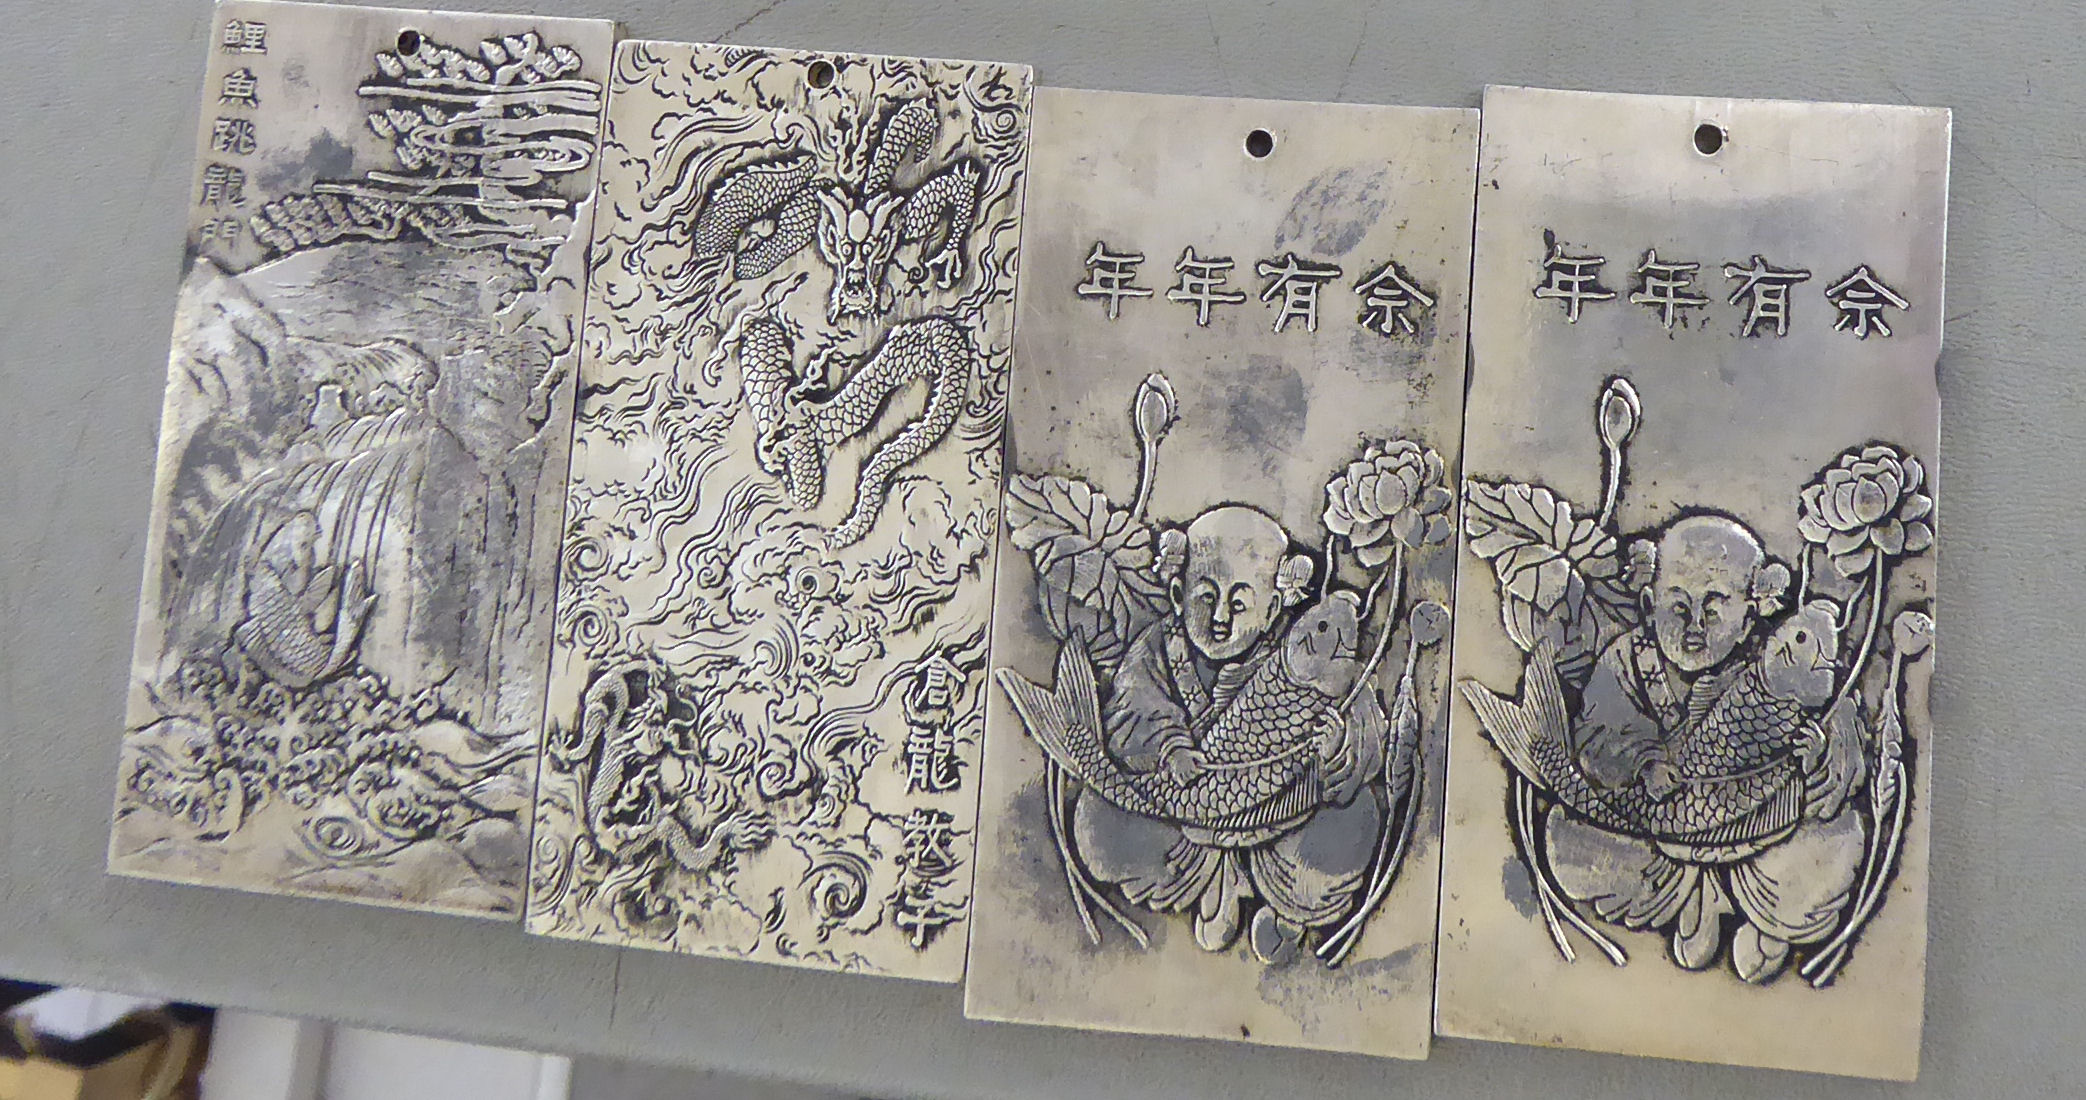 鯉魚跳龍門
倉龍教子
年年有余
年年有余